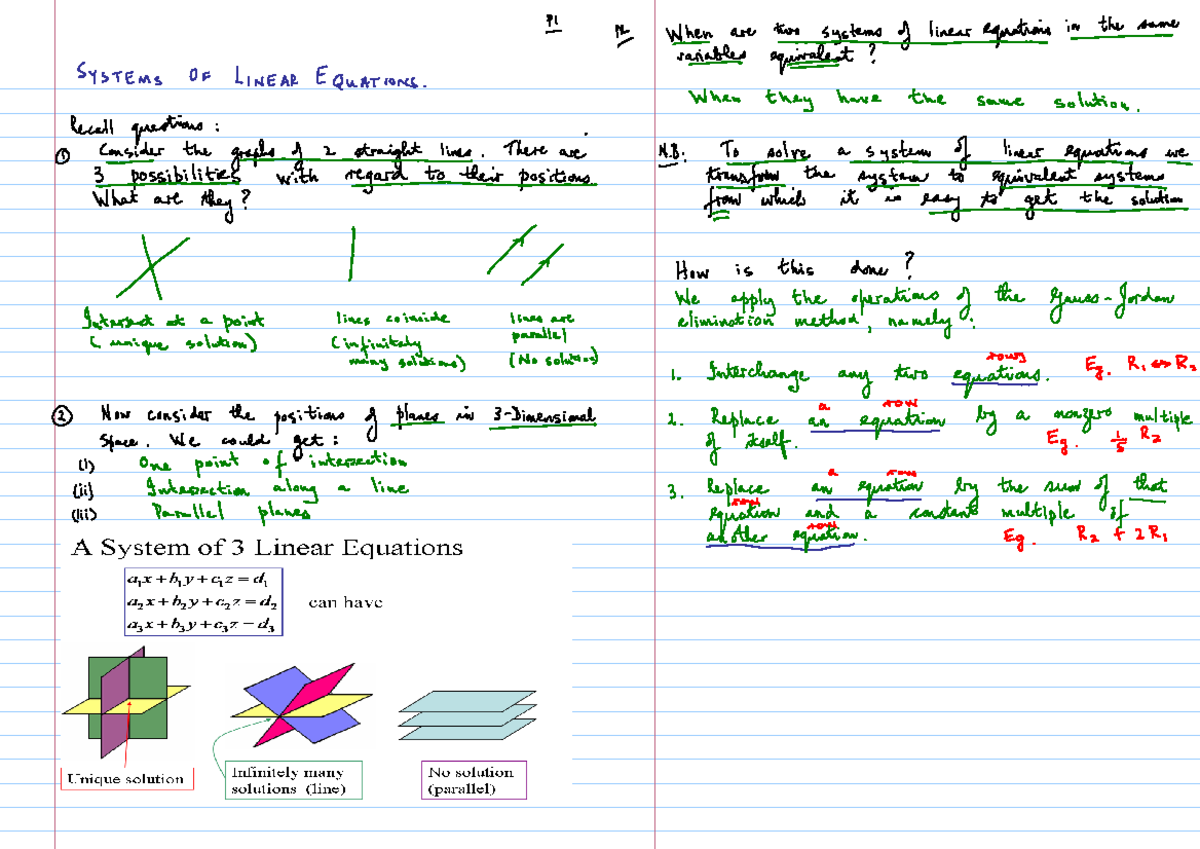 P1
SYSTEMS OF LINEAR EQUATIONS.
Recall questions :
① Consider the graphs of 2 straight lines. There are
3 possibilities with regard to their positions
What are they?
Intersect at a point
(unique solution)
lines coincide
(infinitely
many solutions)
lines are
parallel
(No solution)
② Now consider the positions of planes in 3-Dimensional
space. We could get :
(i) One point of intersection
(ii) Intersection along a line
(iii) Parallel planes
A System of 3 Linear Equations
a₁x + b₁y + c₁z = d₁
a₂x + b₂y + c₂z = d₂
a₃x + b₃y + c₃z = d₃
can have
Unique solution
Infinitely many
solutions (line)
No solution
(parallel)
P2
When are two systems of linear equations in the same
variables equivalent ?
When they have the same solution.
N.B: To solve a system of linear equations we
transform the system to equivalent systems
from which it is easy to get the solution
How is this done ?
We apply the operations of the Gauss-Jordan
elimination method, namely :
rows
1. Interchange any two equations. Eg. R₁ ⇔ R₂
a row
2. Replace an equation by a nonzero multiple
of itself. Eg. 1/5 R₂
a row
3. Replace an equation by the sum of that
row
equation and a constant multiple of
row
another equation. Eg. R₂ + 2R₁